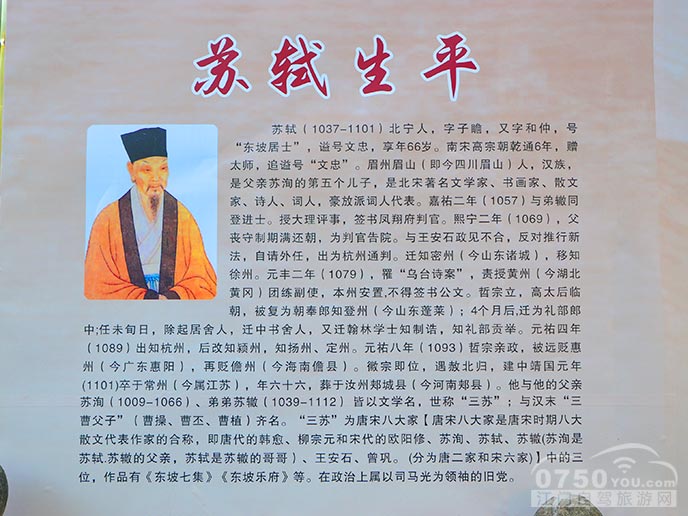 苏轼生平
苏轼（1037-1101）北宁人，字子瞻，又字和仲，号
“东坡居士”，谥号文忠，享年66岁。南宋高宗朝乾通6年，赠
太师，追谥号“文忠”。眉州眉山（即今四川眉山）人，汉族，
是父亲苏洵的第五个儿子，是北宋著名文学家、书画家、散文
家、诗人、词人，豪放派词人代表。嘉祐二年（1057）与弟辙同
登进士。授大理评事，签书凤翔府判官。熙宁二年（1069），父
丧守制期满还朝，为判官告院。与王安石政见不合，反对推行新
法，自请外任，出为杭州通判。迁知密州（今山东诸城），移知
徐州。元丰二年（1079），罹“乌台诗案”，责授黄州（今湖北
黄冈）团练副使，本州安置,不得签书公文。哲宗立，高太后临
朝，被复为朝奉郎知登州（今山东蓬莱）；4个月后,迁为礼部郎
中;任未旬日，除起居舍人，迁中书舍人，又迁翰林学士知制诰，知礼部贡举。元祐四年
（1089）出知杭州，后改知颍州，知扬州、定州。元祐八年（1093）哲宗亲政，被远贬惠
州（今广东惠阳），再贬儋州（今海南儋县）。徽宗即位，遇赦北归，建中靖国元年
(1101)卒于常州（今属江苏），年六十六，葬于汝州郏城县（今河南郏县）。他与他的父亲
苏洵（1009-1066）、弟弟苏辙（1039-1112）皆以文学名，世称“三苏”；与汉末“三
曹父子”（曹操、曹丕、曹植）齐名。“三苏”为唐宋八大家【唐宋八大家是唐宋时期八大
散文代表作家的合称，即唐代的韩愈、柳宗元和宋代的欧阳修、苏洵、苏轼、苏辙(苏洵是
苏轼.苏辙的父亲，苏轼是苏辙的哥哥）、王安石、曾巩。(分为唐二家和宋六家)】中的三
位，作品有《东坡七集》《东坡乐府》等。在政治上属以司马光为领袖的旧党。
0750YOU.com
江门自驾旅游网